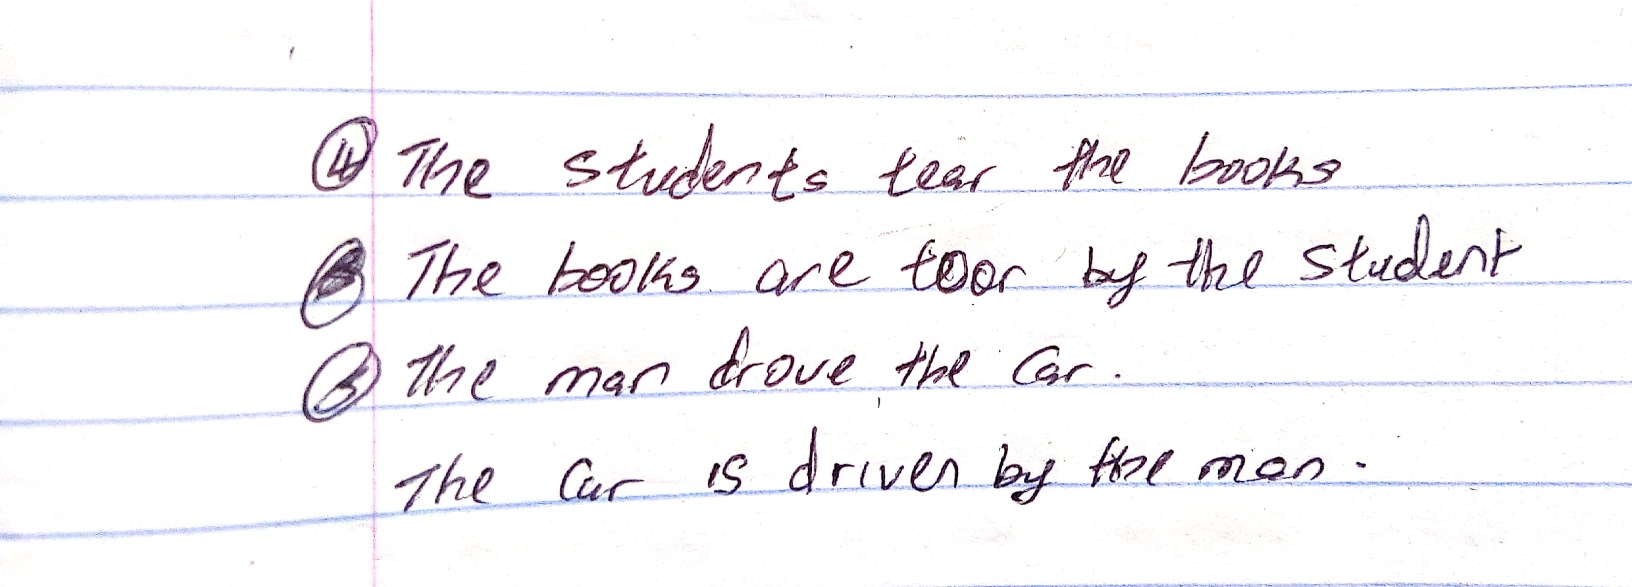 ④ The students tear the books
The books are toor by the student
⑤ The man drove the car.
The car is driven by the man.